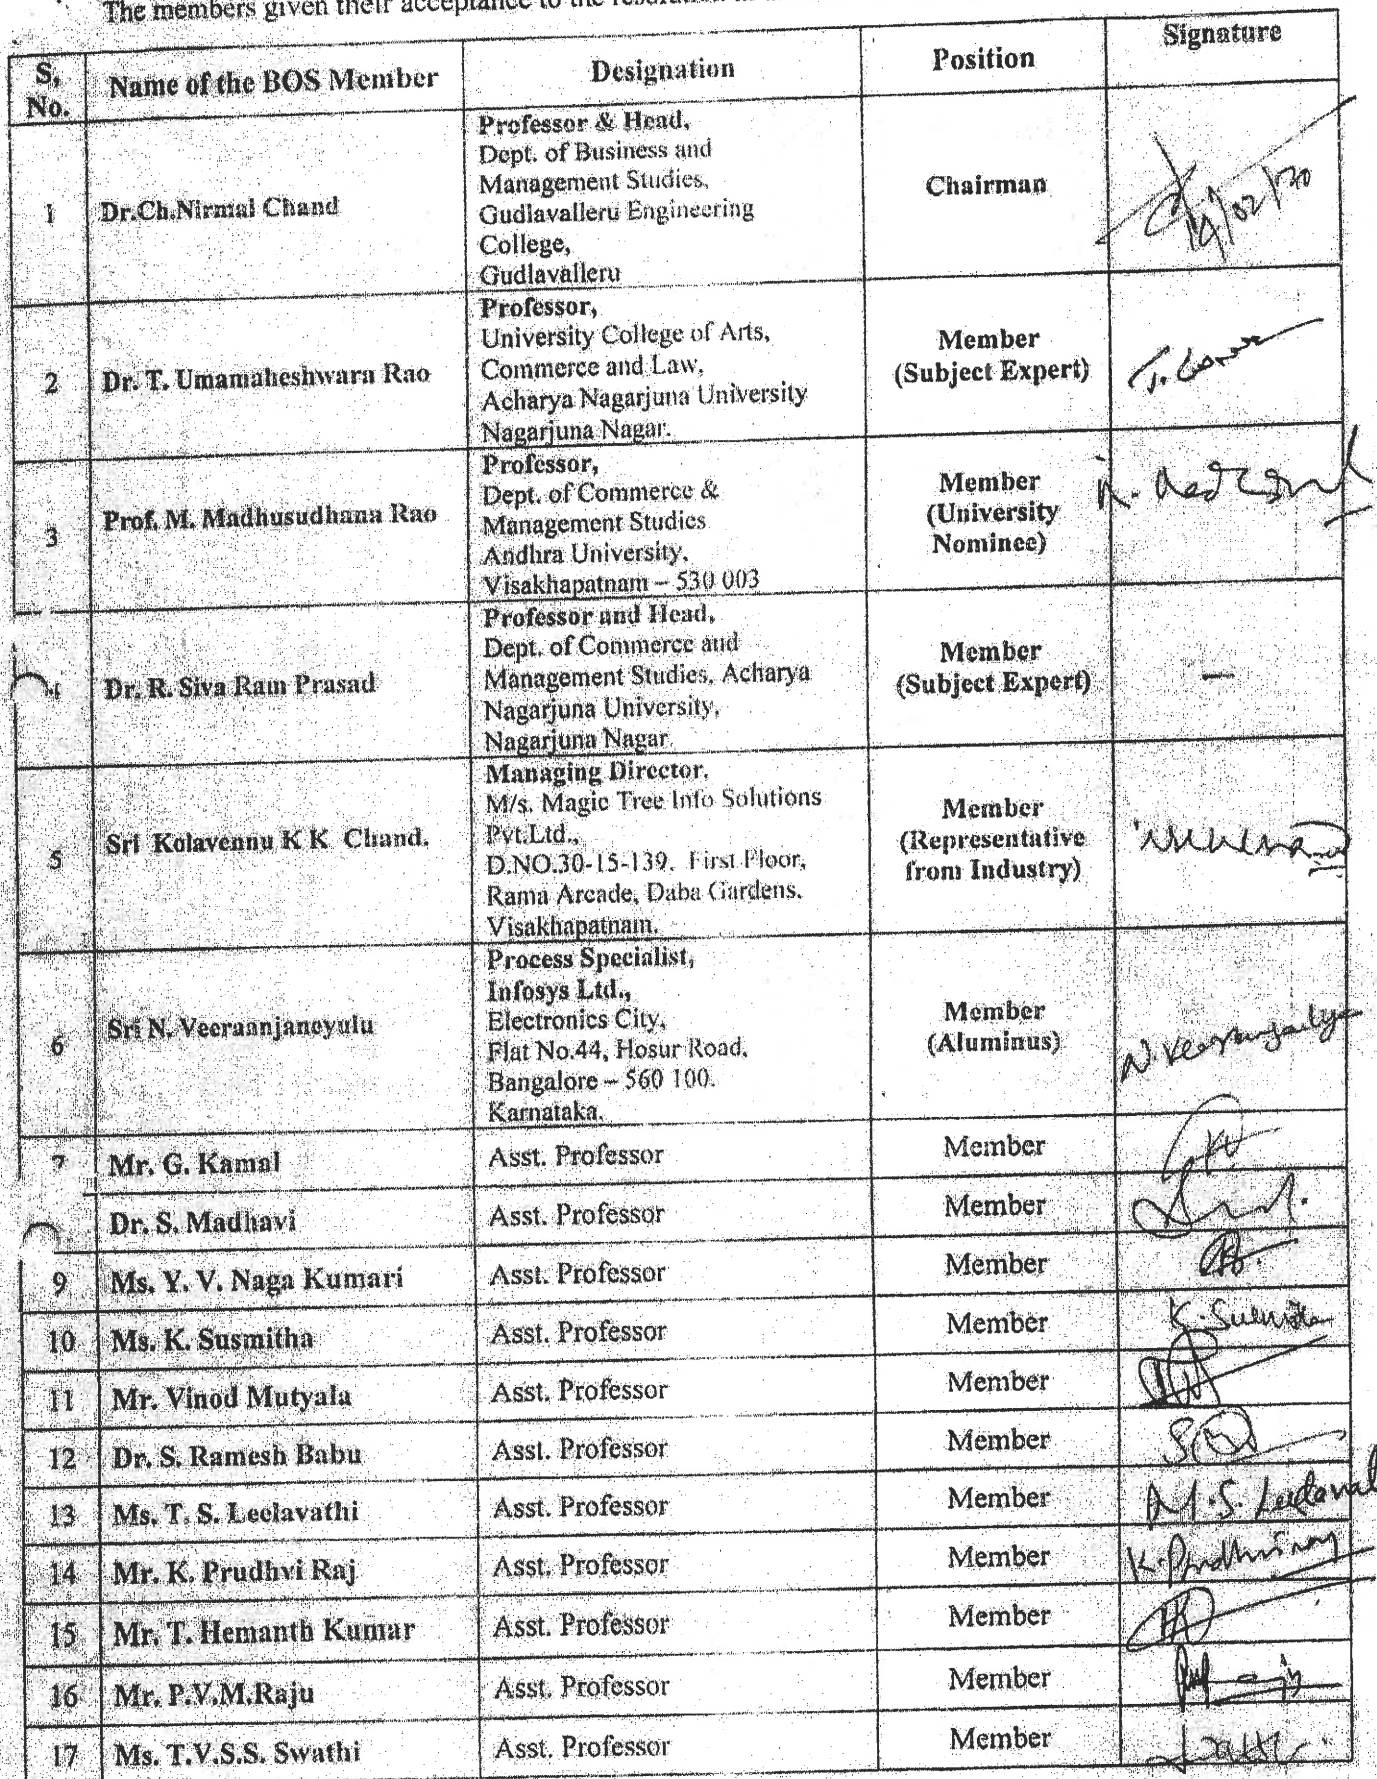 The members given their acceptance to the
S.
No.
Name of the BOS Member
Designation
Position
Signature
1
Dr.Ch.Nirmal Chand
Professor & Head,
Dept. of Business and
Management Studies,
Gudlavalleru Engineering
College,
Gudlavalleru
Chairman
19/02/20
2
Dr. T. Umamaheshwara Rao
Professor,
University College of Arts,
Commerce and Law,
Acharya Nagarjuna University
Nagarjuna Nagar.
Member
(Subject Expert)
3
Prof. M. Madhusudhana Rao
Professor,
Dept. of Commerce &
Management Studies
Andhra University,
Visakhapatnam – 530 003
Member
(University
Nominee)
Dr. R. Siva Ram Prasad
Professor and Head,
Dept. of Commerce and
Management Studies, Acharya
Nagarjuna University,
Nagarjuna Nagar.
Member
(Subject Expert)
—
5
Sri Kolavennu K K Chand.
Managing Director,
M/s. Magic Tree Info Solutions
Pvt.Ltd.,
D.NO.30-15-139, First Floor,
Rama Arcade, Daba Gardens.
Visakhapatnam.
Member
(Representative
from Industry)
6
Sri N. Veeraanjaneyulu
Process Specialist,
Infosys Ltd.,
Electronics City,
Flat No.44, Hosur Road,
Bangalore – 560 100.
Karnataka.
Member
(Aluminus)
7
Mr. G. Kamal
Asst. Professor
Member
Dr. S. Madhavi
Asst. Professor
Member
9
Ms. Y. V. Naga Kumari
Asst. Professor
Member
10
Ms. K. Susmitha
Asst. Professor
Member
11
Mr. Vinod Mutyala
Asst. Professor
Member
12
Dr. S. Ramesh Babu
Asst. Professor
Member
13
Ms. T. S. Leelavathi
Asst. Professor
Member
14
Mr. K. Prudhvi Raj
Asst. Professor
Member
K. Prudhviraj
15
Mr. T. Hemanth Kumar
Asst. Professor
Member
16
Mr. P.V.M.Raju
Asst. Professor
Member
17
Ms. T.V.S.S. Swathi
Asst. Professor
Member